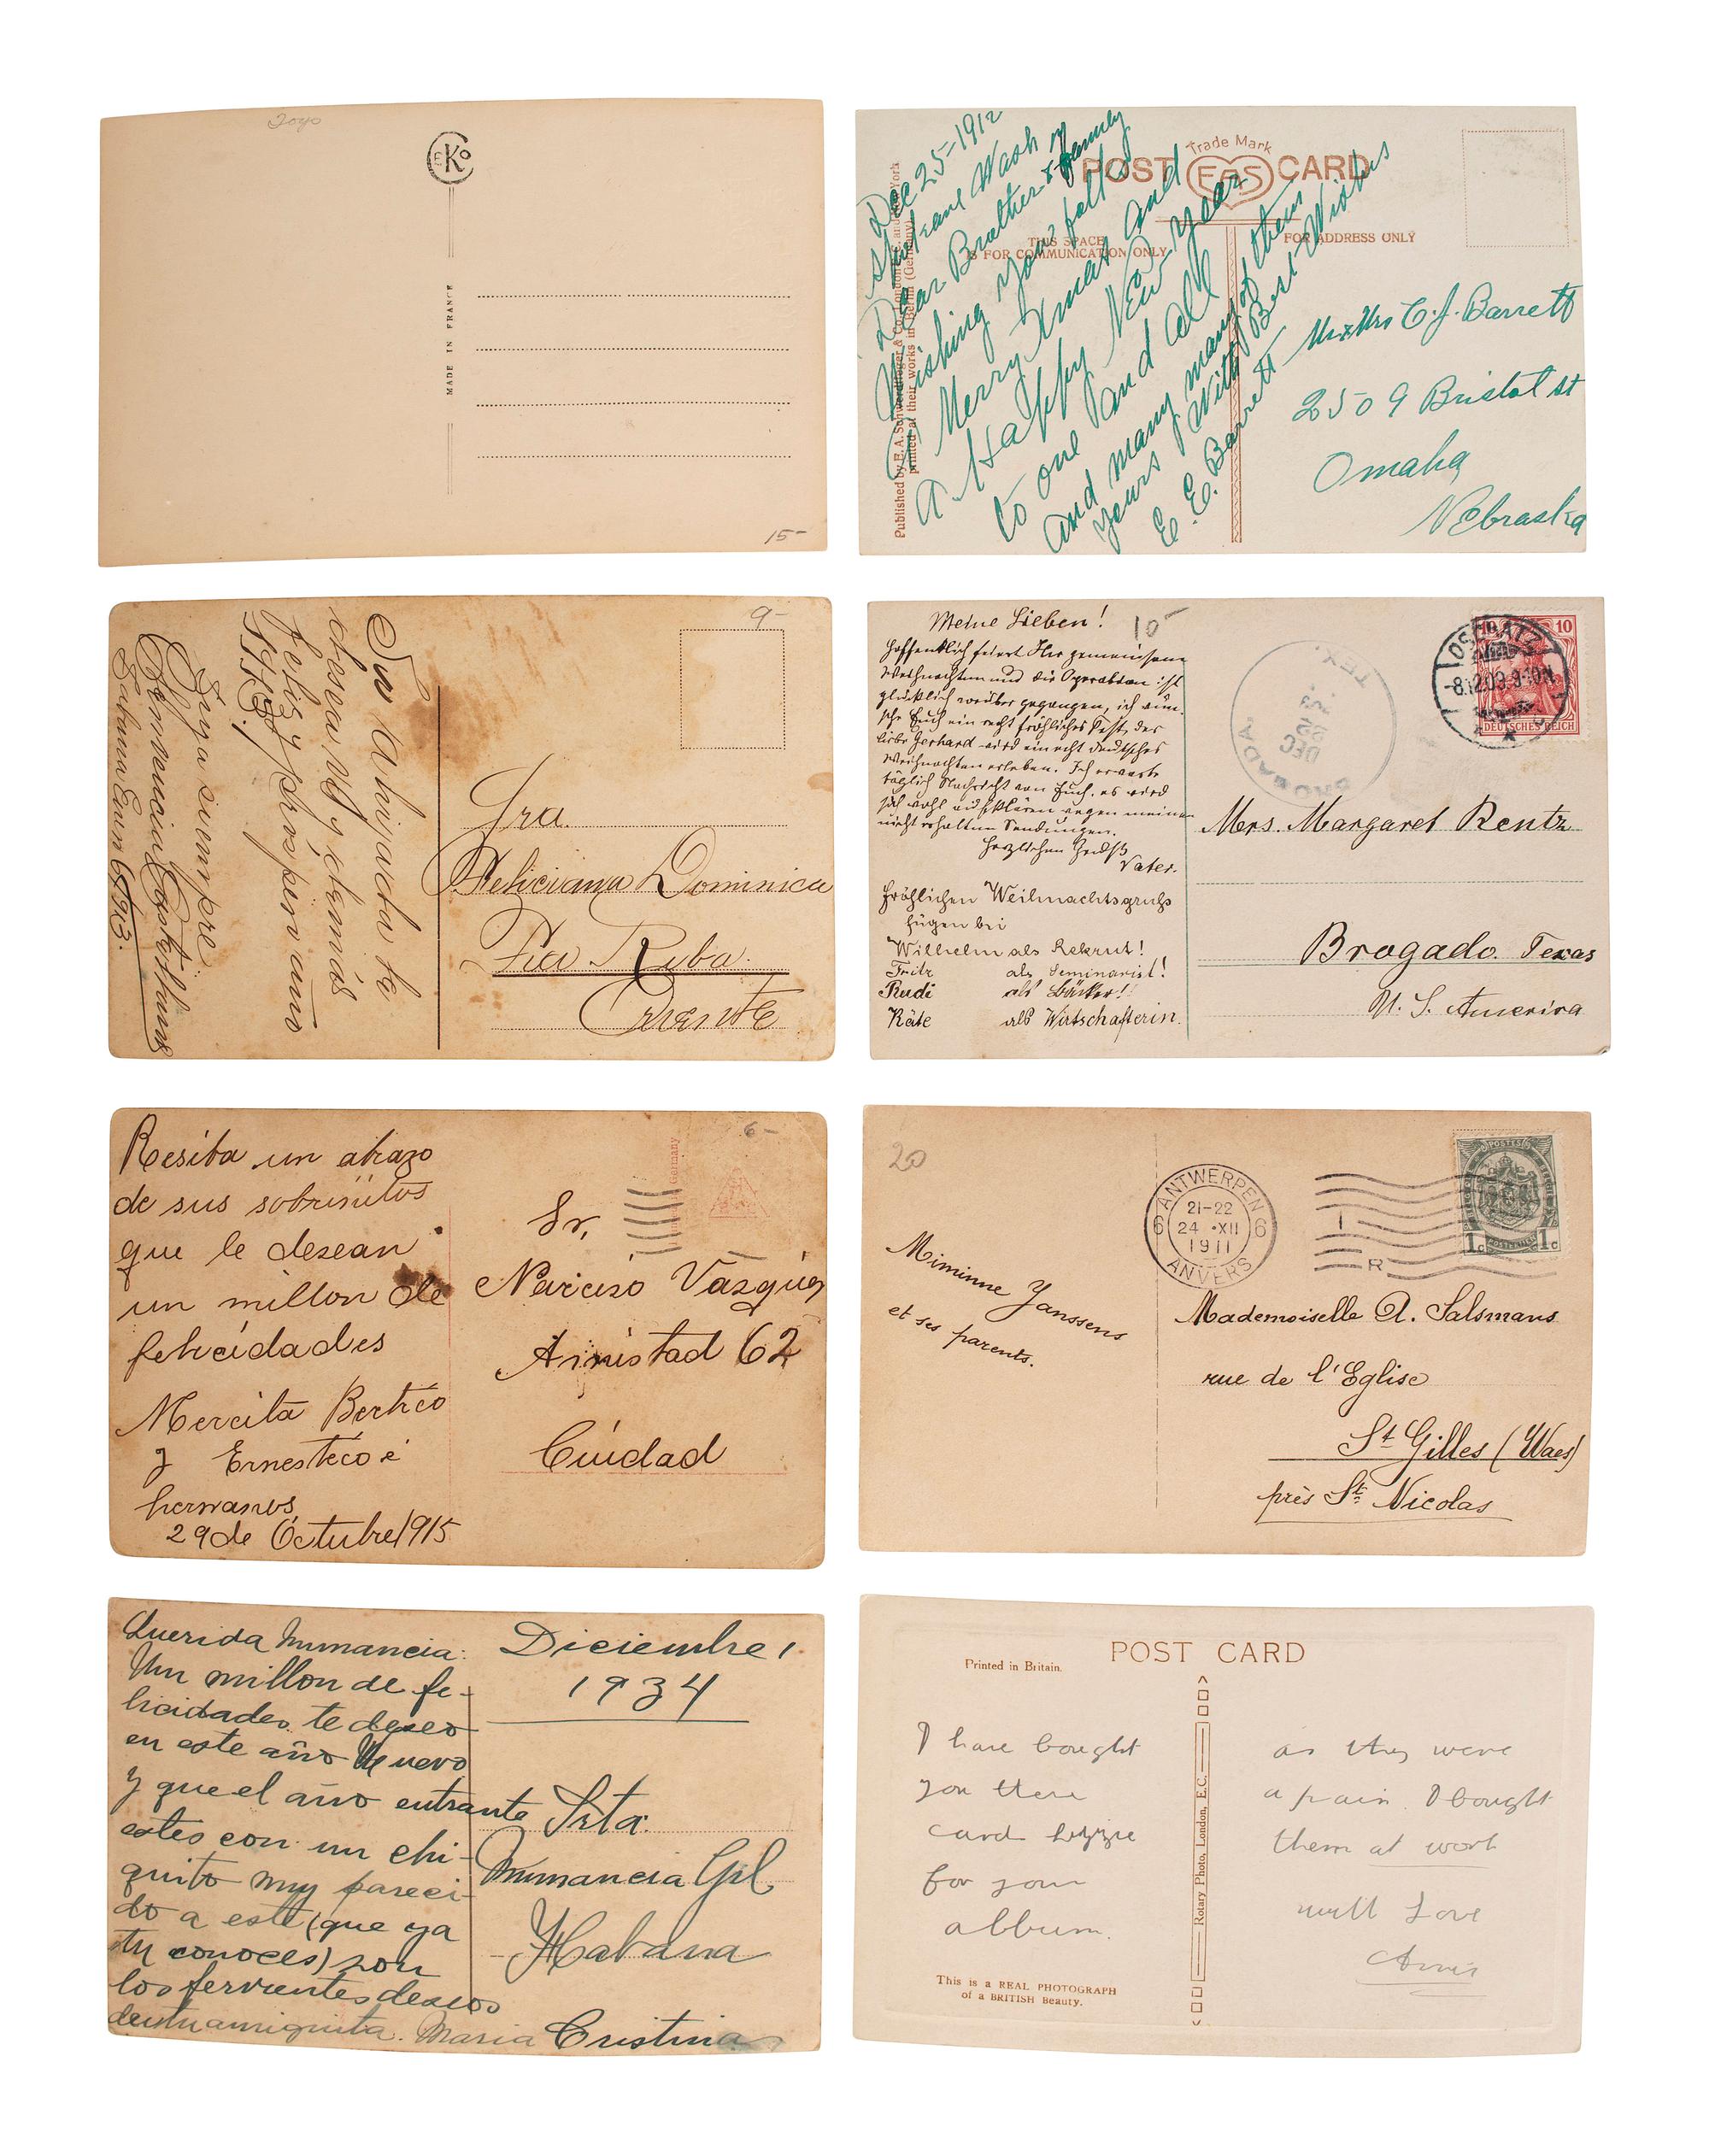 Toys
EKC
MADE IN FRANCE
15-
Dec 25-1912
Spokane Wash
Dear Brother & Family
Wishing you all
A Merry Xmas and
A Happy New Year
to one and all
and many many of them
yours With Best Wishes
E. E. Barrett
Published by E.A. Schwerdtfeger & Co. London E.C. and New York
printed at their works in Berlin (Germany)
Trade Mark
POST EAS CARD
THIS SPACE
IS FOR COMMUNICATION ONLY
FOR ADDRESS ONLY
Mr & Mrs C. J. Barrett
2509 Bristol st
Omaha
Nebraska
9-
Su ahijada le
desea a Ud y demás
feliz y próspero año
1913!
Suya siempre
Sabana Enero 6/913.
Sra.
Feliciana Dominica
Oriente
Meine Lieben!
Hoffentlich feiert Ihr gemeinsam
Weihnachten und die Operation ist
glücklich vorüber gegangen, ich wün-
sche Euch ein recht fröhliches Fest, der
liebe Gerhard wird ein echt deutsches
Weihnachten erleben. Ich erwarte
täglich Nachricht von Euch, es wird
sich wohl aufklären wegen meinen
nicht erhaltenen Sendungen.
Herzlichen Gruß
Vater.
Fröhlichen Weihnachtsgruß
fügen bei
Wilhelm als Rekrut!
Fritz als Seminarist!
Rudi als Bäcker!
Käte als Wirtschafterin.
10-
BROGADO
DEC
TEX.
OSCHATZ
-8.12.09.9-10N
10
DEUTSCHES REICH
Mrs. Margaret Rentz
Brogado. Texas
N. S. America
Resiba un abrazo
de sus sobrinitos
que le desean
un millon de
felicidades
Mercita Bertico
y Ernestico é
hermanos
29 de Octubre 1915
6-
Germany
Sr,
Narciso Vazquez
Amistad 62
Ciudad
20
Miminne Janssens
et ses parents.
ANTWERPEN
21-22
6 24 ·XII 6
1911
ANVERS
I
R
POSTES
1c 1c
POSTERIJEN
Mademoiselle A. Salsmans
rue de l'Eglise
St Gilles (Waes)
près St. Nicolas
Querida Numancia:
Un millon de fe-
licidades te deseo
en este año Nuevo
y que el año entrante
estes con un chi-
quito muy pareci-
do a este (que ya
tu conoces) son
los fervientes deseos
de tu amiguita. Maria Cristina
Diciembre 1
1934
Srta.
Numancia Gil
Habana
POST CARD
Printed in Britain.
I have bought
you these
card Lizzie
for your
album.
as they were
a pair I bought
them at work
with Love
Annie
Rotary Photo, London, E.C.
This is a REAL PHOTOGRAPH
of a BRITISH Beauty.